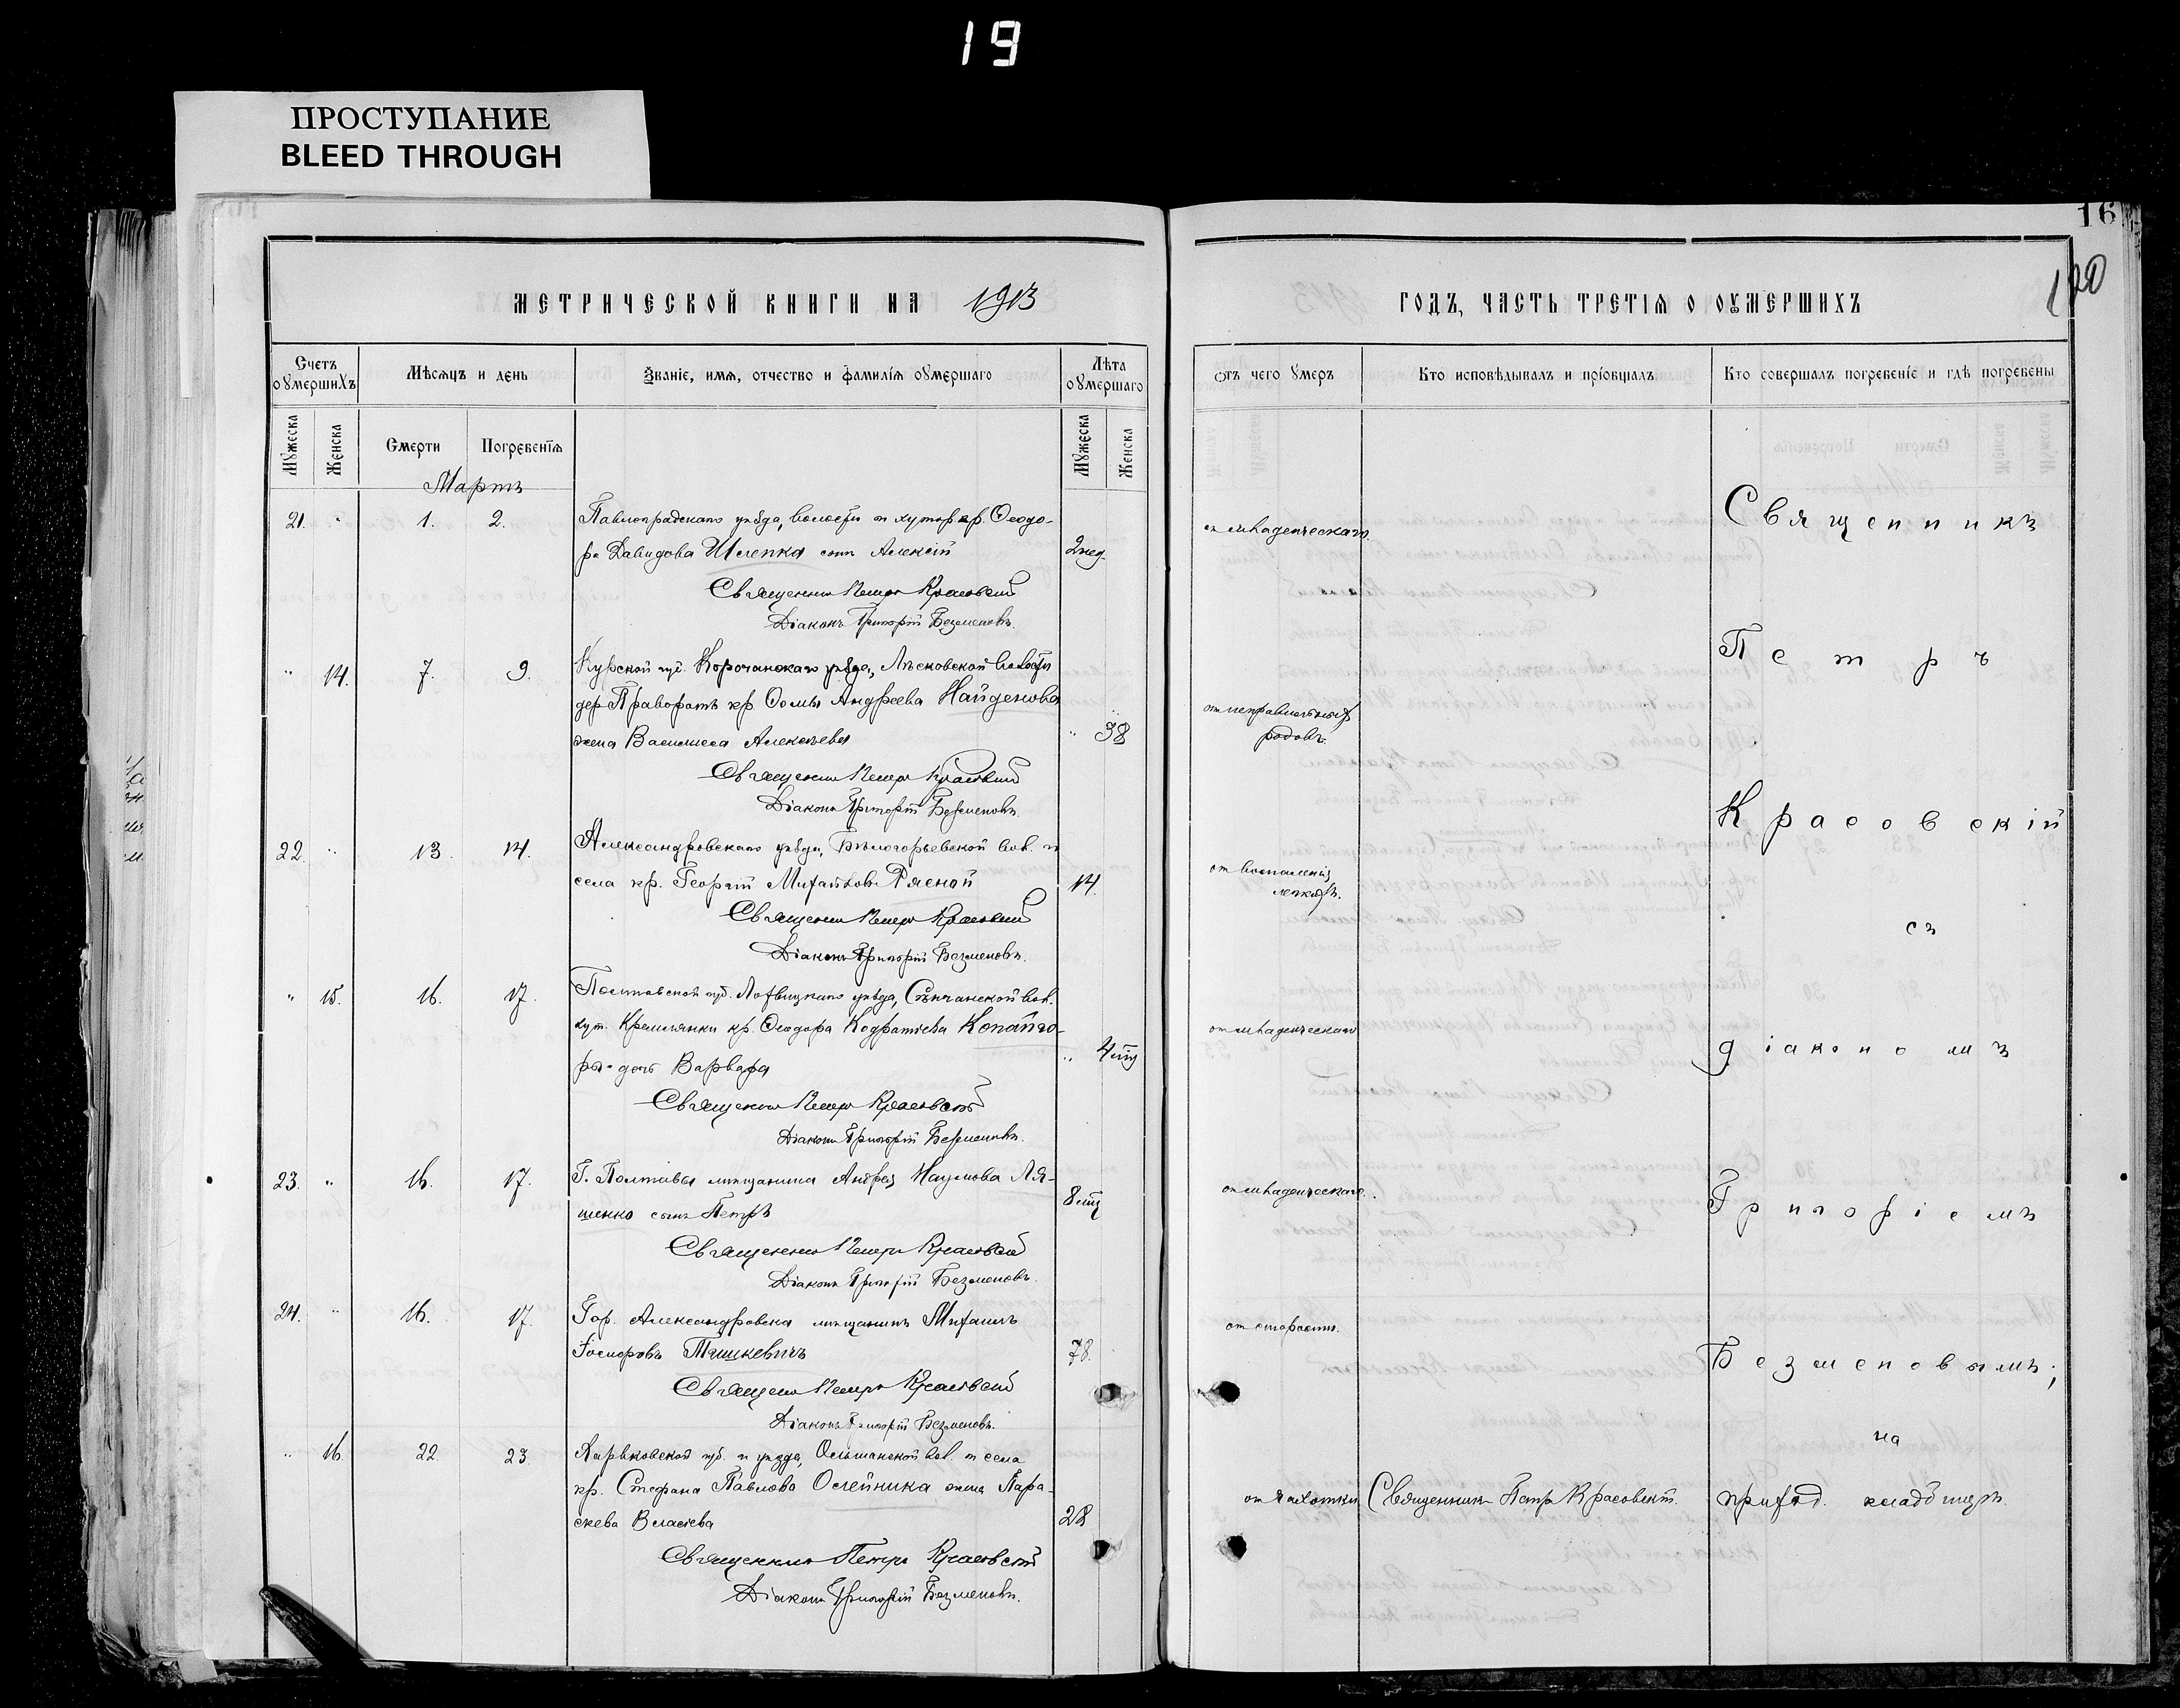 19
ПРОСТУПАНИЕ
BLEED THROUGH
16
120
МЕТРИЧЕСКОЙ КНИГИ НА 1913
ГОДЪ, ЧАСТЬ ТРЕТІѦ О ОУМЕРШИХЪ
Счетъ оумершихъ
Мѣсѧцъ и день
Званіе, имѧ, отчество и фамиліѧ оумершаго
Лѣта оумершаго
Отъ чего умеръ
Кто исповѣдывалъ и пріобщалъ
Кто совершалъ погребеніе и гдѣ погребены
Мужеска
Женска
Смерти
Погребеніѧ
Мужеска
Женска
Мартъ
21. " 1. 2. Павлоградскаго уѣзда, волости и хутор. кр. Ѳеодо-
ра Давидова Шлепка сынъ Алексій 2 нед. от младенческаго
Священникъ Петръ Красовскій
Діаконъ Григорій Безменовъ.
" 14. 7. 9. Курской губ. Корочанскаго уѣзда, Лѣсковской волости
дер. Праворотъ кр. Ѳомы Андреева Найденова
жена Василиса Алексѣева " 38 от неправильныхъ
родовъ.
Священникъ Петръ Красовскій
Діаконъ Григорій Безменовъ.
22. " 13. 14. Александровскаго уѣзда, Бѣлогорьевской вол. и
села кр. Георгій Михайловъ Рясной 14. от воспаленія
легкихъ.
Священникъ Петръ Красовскій
Діаконъ Григорій Безменовъ.
" 15. 16. 17. Полтавской губ. Лохвицкаго уѣзда, Сѣнчанской вол.
хут. Кремлянки кр. Ѳеодора Кодратіева Копайго-
ры дочь Варвара " 4 мц от младенческаго
Священникъ Петръ Красовскій
Діаконъ Григорій Безменовъ.
23. " 16. 17. Г. Полтавы мѣщанина Андрея Наумова Ля-
шенко сынъ Петръ 8 мц от младенческаго.
Священникъ Петръ Красовскій
Діаконъ Григорій Безменовъ.
24. " 16. 17. Гор. Александровска мѣщанинъ Михаилъ
Тишкевичъ 78. от старости.
Священникъ Петръ Красовскій
Діаконъ Григорій Безменовъ.
" 16. 22. 23. Харьковской губ. и уѣзда, Ольшанской вол. и села
кр. Стефана Павлова Олейника жена Пара-
скева Власіева 28 от чахотки Священникъ Петръ Красовскій.
Священникъ Петръ Красовскій
Діаконъ Григорій Безменовъ.
Священникъ
Петръ
Красовскій
съ
діакономъ
Григоріемъ
Безменовымъ;
на
приход. кладбищѣ.